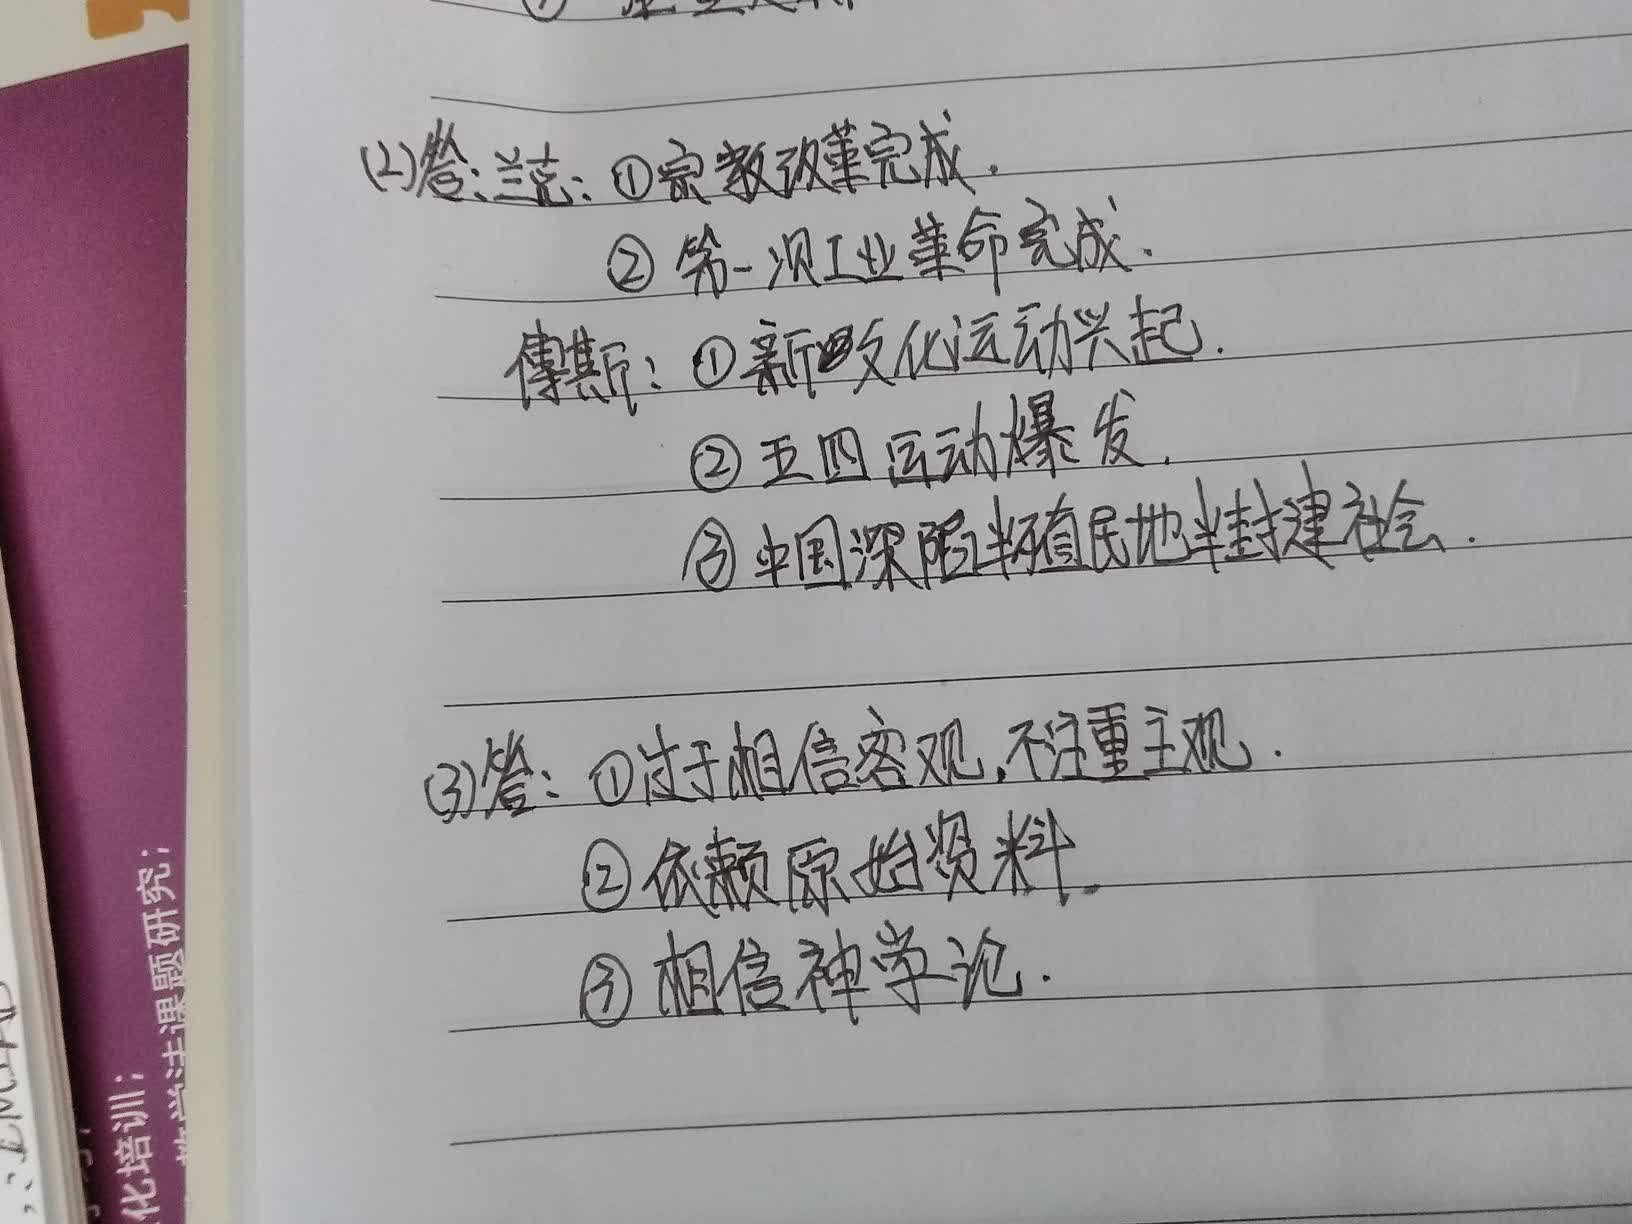 (2)答:兰克:①宗教改革完成.
②第一次工业革命完成.
傅斯:①新文化运动兴起.
②五四运动爆发.
③中国深陷半殖民地半封建社会.
(3)答:①过于相信客观,不注重主观.
②依赖原始资料.
③相信神学论.
教学法课题研究;
化培训;